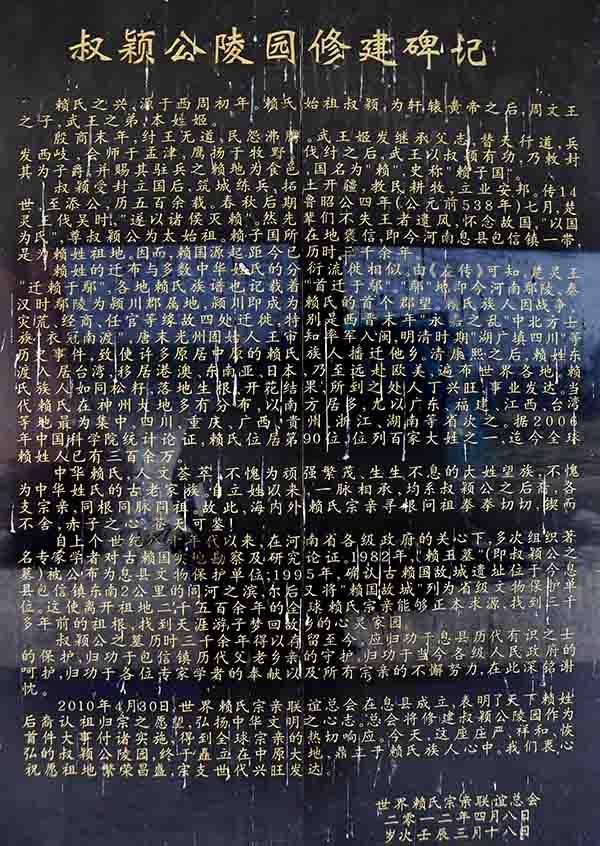 叔颖公陵园修建碑记
赖氏之兴,源于西周初年。赖氏始祖叔颖,为轩辕黄帝之后,周文王
之子,武王之弟,本姓姬。
殷商末年,纣王无道,民怨沸腾。武王姬发继承父志,替天行道,兵
发西岐,会师于孟津,鹰扬于牧野。伐纣之后,武王以叔颖有功,乃敕封
其为子爵,并赐其驻兵之赖地为食邑,国名为"赖",史称"赖子国"。
叔颖受封立国后,筑城练兵,拓土开疆,教民耕牧,立业安邦。传14
世,至添公,历五百余载。春秋后期鲁昭公四年(公元前538年)七月,楚
灵王伐吴时,"遂以诸侯灭赖"。然先辈们不失王者遗风,怀念故国,"以国
为氏",尊叔颖公为太始祖。赖子国所在地褒信,即今河南息县包信镇一带,
是为赖姓祖地。因而,赖国源起距今已历时三千余年。
赖姓的迁布与多数中华姓氏的分衍流徙相似。由《左传》可知,楚灵王
"迁赖于鄢",各地赖氏族谱也记载着"首迁于鄢"。"鄢"地即今河南鄢陵。秦
汉时鄢陵为颍川郡属地,颍川即成为赖氏的首个郡望。赖氏族人因战争、
灾荒、经商、任官等缘故四处迁徙,特别是西晋末年"永嘉之乱"中北方士
族"衣冠南渡",唐末光州固始人王审知率军入闽,明清时期"湖广填四川"等
历史事件,致使许多原居中原的赖氏族人播迁他乡。清康熙之后,赖姓东
渡入居台湾,移居港澳、东南亚、日本,乃至远赴欧美,遍布世界各地。赖
氏族人如同松籽,落地生根,开花结果,所到之处,人丁兴旺,事业发达。当
代赖氏在神州大地多有分布,以南方居多,尤以广东、福建、江西、台湾
等地最为集中,四川,重庆、广西、贵州,浙江,湖南等省次之。据2006
年中国科学院统计论证,赖氏位居第90位,位列百家大姓之一,迄今全球
赖姓人已有三百余万。
中华赖氏,人文荟萃,不愧为顽强繁茂、生生不息的大姓望族,不愧
为中华姓氏的古老家族。自立姓以来,一脉相承,均系叔颖公之后裔,各
支宗亲,同根同脉同祖。故此,海内外赖氏宗亲寻根问祖拳拳切切,锲而
不舍,赤子之心,苍天可鉴!
自上个世纪八十年代以来,在河南省各级政府的关心下,多次组织著
名专家学者对古赖国实地勘察及研究论证。1982年,"赖丑墓"(即叔颖公之
墓)被公布为息县文物保护单位;1995年,确认古赖国故城遗址位于今息
县包信镇东南2公里的间河之滨,尔后又将"赖国故城"列为省级文物保护单
位。这使离开祖地二千五百余年的全球赖氏宗亲能够正本求源,找到三千
多年前的祖根,找到天涯游子梦回故乡的心灵家园。
叔颖公之墓历时三千余年得以存留至今,应归功于息县历代有识之士
的保护,归功于包信镇历代父老乡亲的守护,归功于当今各级人民政府的
呵护,归功于各位专家学者的奉献以及所有宗亲的不懈努力,在此深铭谢
忱。
2010年4月30日,世界赖氏宗亲联谊总会在息县成立,表明了天下赖姓
后裔认祖归宗之愿望,弘扬中华文明之心志。总会将修建叔颖公陵园作为
首件大事付诸实施,得到全球宗亲的热切响应。今天,这座庄严、祥和、恢
弘的叔颖公陵园,终于矗立在中原大地,鼎丰于赖氏族人心中。我们衷心
祝愿祖地繁荣昌盛,宗支世代兴旺发达。
世界赖氏宗亲联谊总会
二零一二年四月八日
岁次壬辰三月十八日